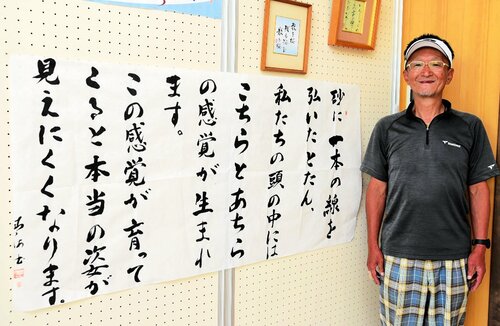 砂に一本の線を
引いたとたん、
私たちの頭の中には
こちらとあちら
の感覚が生まれ
ます。
この感覚が育って
くると本当の姿が
見えにくくなります。